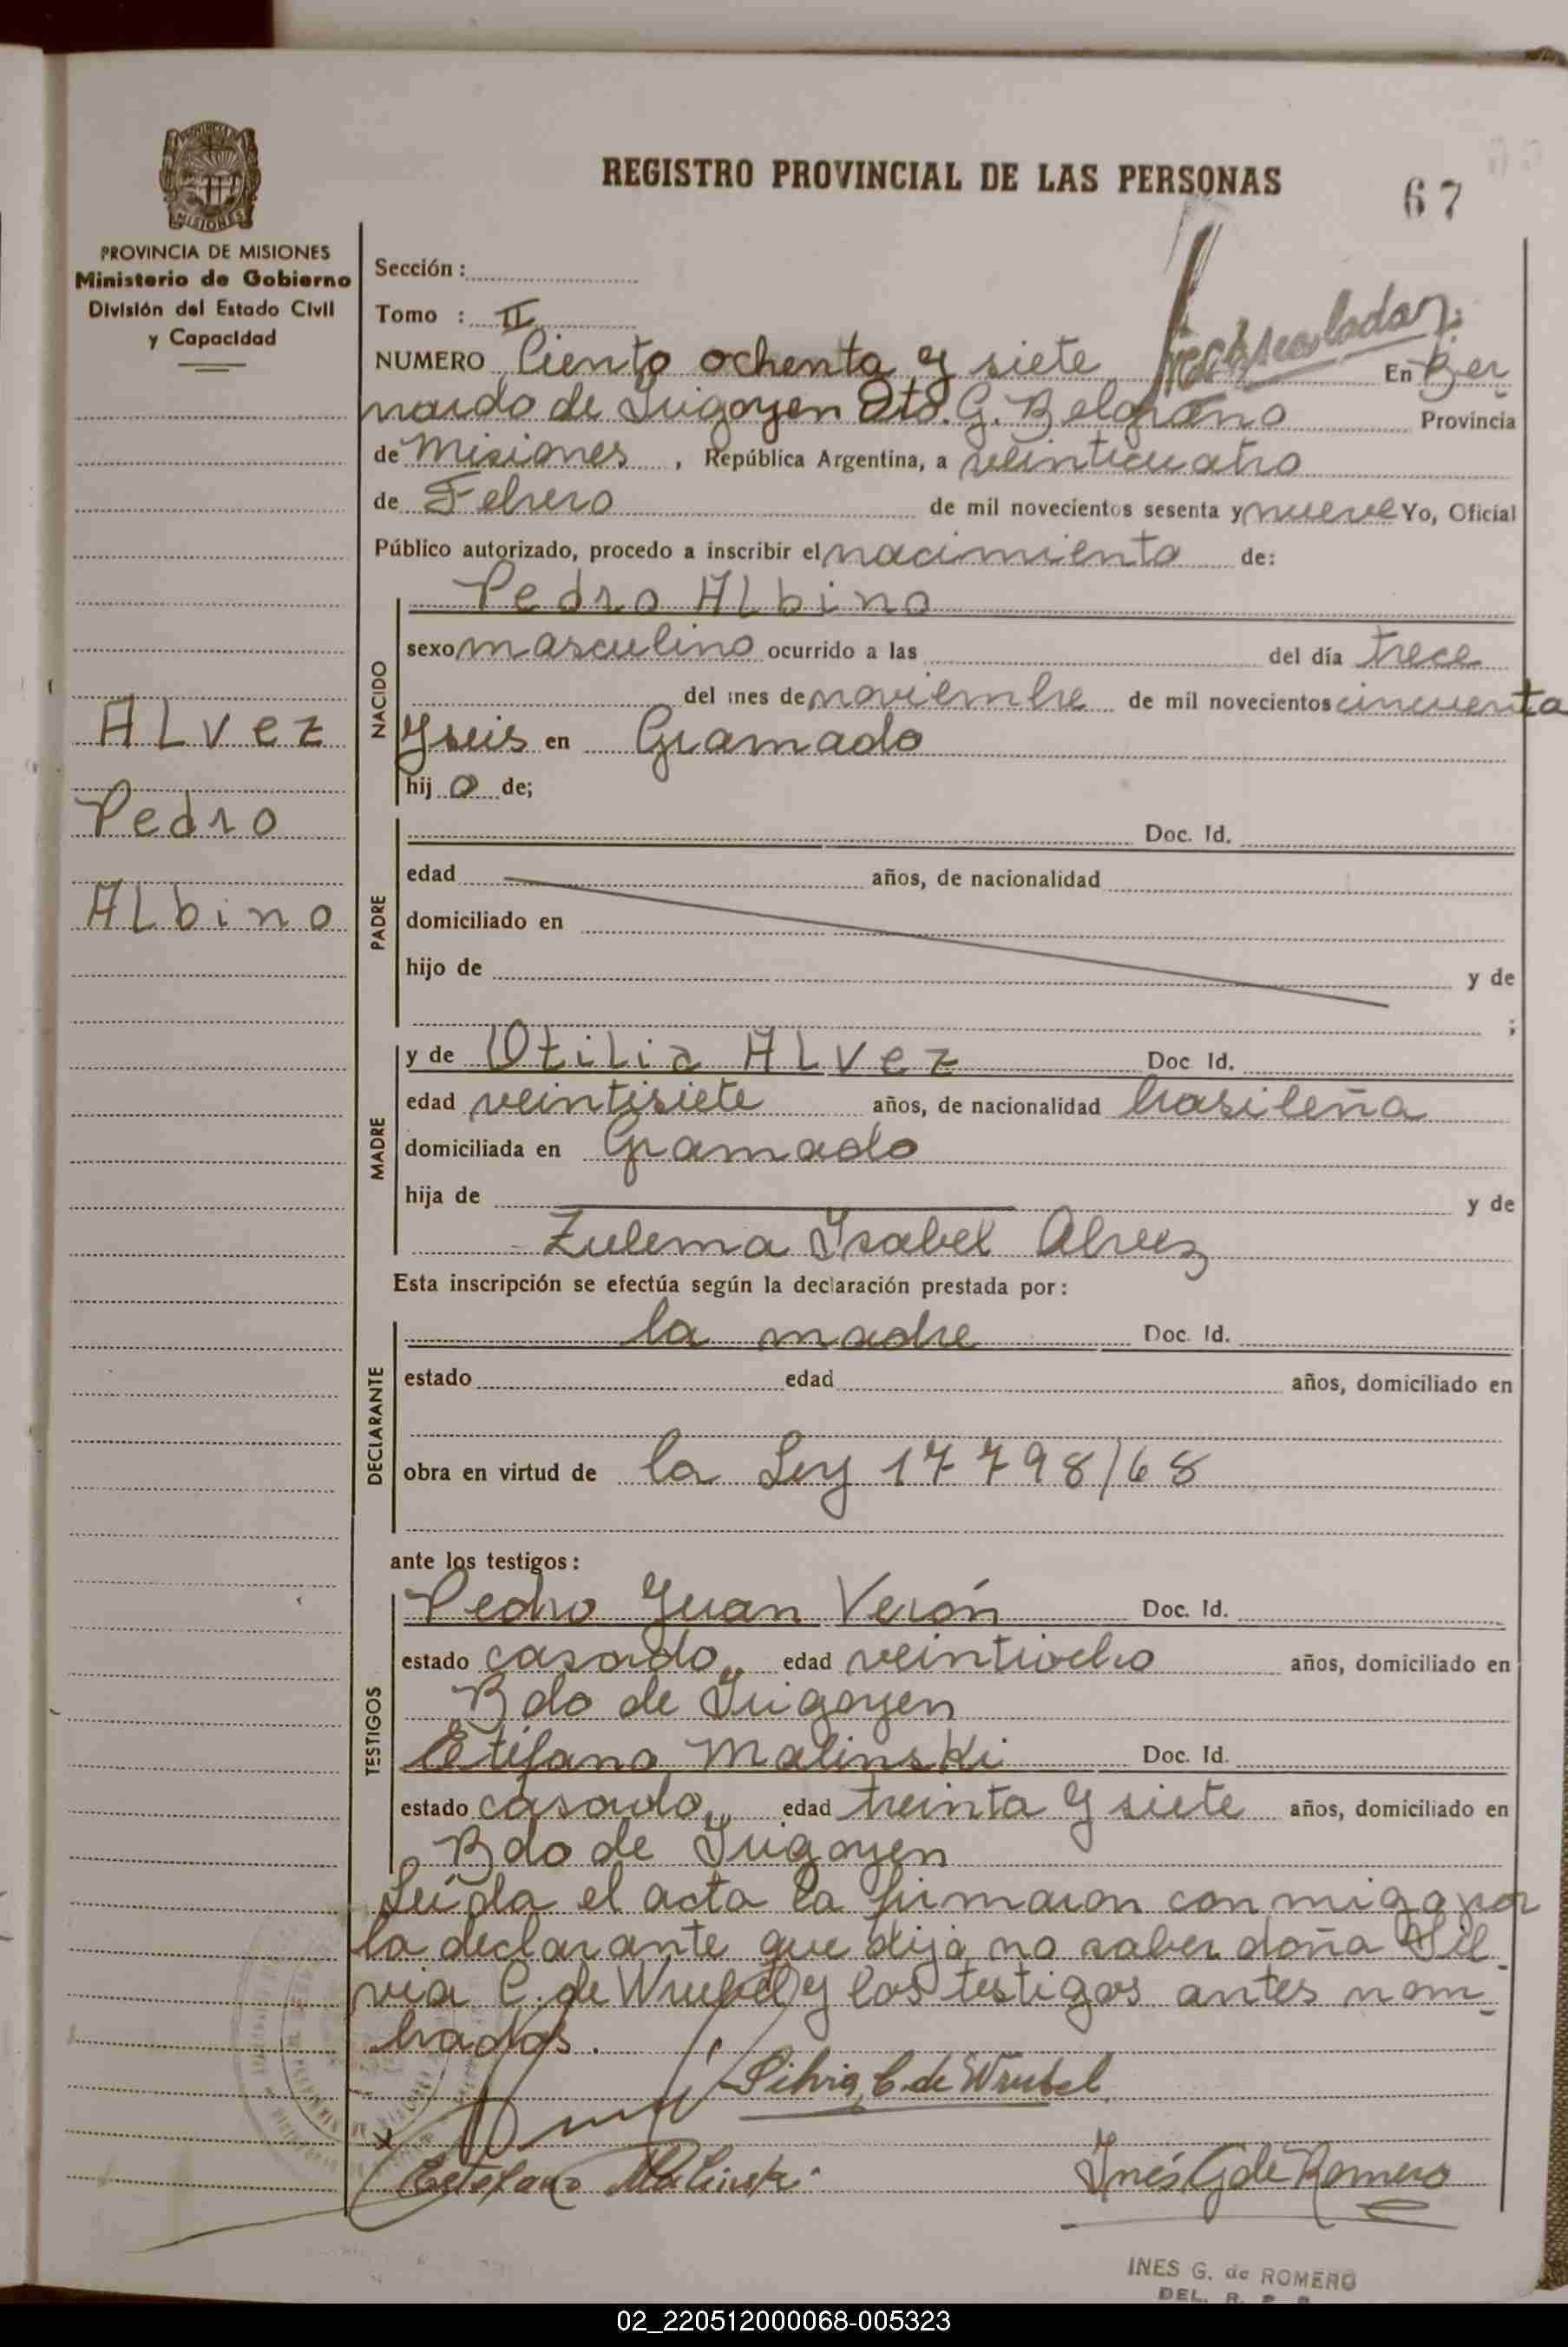 REGISTRO PROVINCIAL DE LAS PERSONAS
67
MISIONES
PROVINCIA DE MISIONES
Ministerio de Gobierno
División del Estado Civil
y Capacidad
Sección :
Tomo : II
NUMERO Ciento ochenta y siete En Ber
nardo de Irigoyen Dto. G. Belgrano Provincia
de Misiones , República Argentina, a veinticuatro
de Febrero de mil novecientos sesenta y nueve Yo, Oficial
Público autorizado, procedo a inscribir el nacimiento de:
Pedro ALbino
NACIDO
sexo masculino ocurrido a las del día trece
del mes de noviembre de mil novecientos cincuenta
y seis en Gramado
hij o de;
ALvez
Pedro
ALbino
PADRE
Doc. Id.
edad años, de nacionalidad
domiciliado en
hijo de y de
;
MADRE
y de Otilia ALvez Doc Id.
edad veintisiete años, de nacionalidad brasileña
domiciliada en Gramado
hija de y de
Zulema Ysabel Alvez
Esta inscripción se efectúa según la declaración prestada por :
DECLARANTE
la madre Doc. Id.
estado edad años, domiciliado en
obra en virtud de la Ley 17798/68
ante los testigos :
TESTIGOS
Pedro Juan Verón Doc. Id.
estado casado edad veintiocho años, domiciliado en
Bdo de Irigoyen
Estifano Malinski Doc. Id.
estado casado edad treinta y siete años, domiciliado en
Bdo de Irigoyen
Leída el acta la firmaron con migo por
la declarante que dijo no saber doña Sil
via C. de Wrubel y los testigos antes nom
brados.
Silvia C. de Wrubel
Estefano Malinski
Inés G de Romero
INES G. de ROMERO
DEL. R. P. P.
02_220512000068-005323